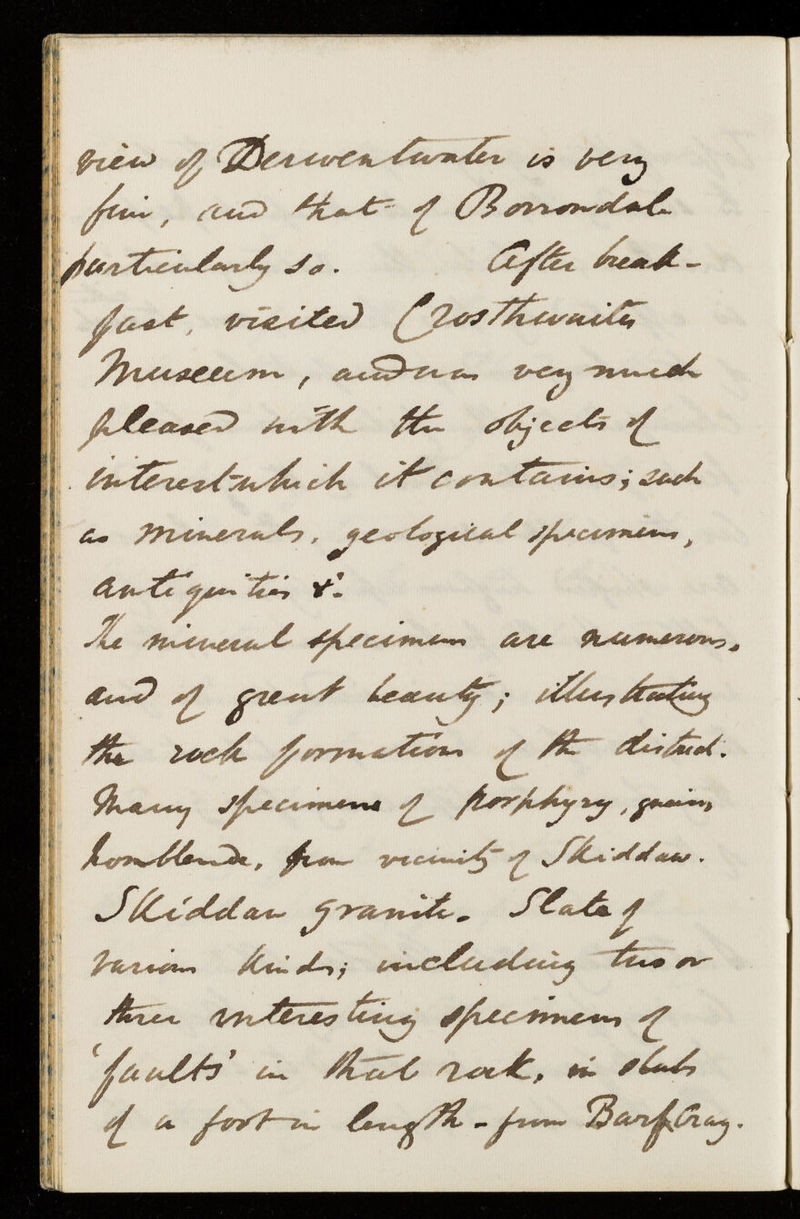 view of Derwentwater is very
fine, and that of Borrowdale
particularly so. After break-
fast, visited Crosthwaites
Museum, and was very much
pleased with the objects of
interest which it contains; such
as minerals, geological specimens,
antiquities &c.
The mineral specimens are numerous,
and of great beauty; illustrating
the rock formations of the district.
Many specimens of porphyry, gneiss,
hornblende, from vicinity of Skiddaw.
Skiddaw granite. Slate of
various kinds; including two or
three interesting specimens of
'faults' in that rock, in slabs
of a foot in length - from Barf Crag.